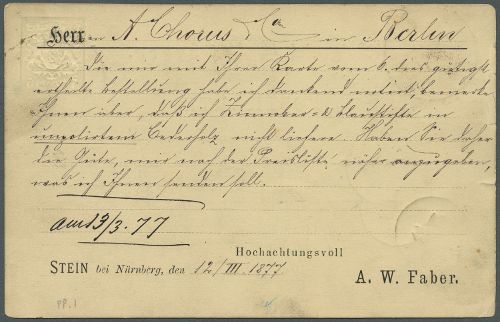 Herren A. Chorus & Co in Berlin
Die mir mit Ihrer Karte vom 6. dies gütigst
ertheilte Bestellung habe ich dankend notirt, bemerke
Ihnen aber, daß ich Zinnober- & Blaustifte in
unpolirtem Cederholz nicht liefere. Haben Sie daher
die Güte, mir nach der Preisliste näher anzugeben,
was ich Ihnen senden soll.
13/3. 77
Hochachtungsvoll
STEIN bei Nürnberg, den 12/III. 1877.
A. W. Faber.
PP.1